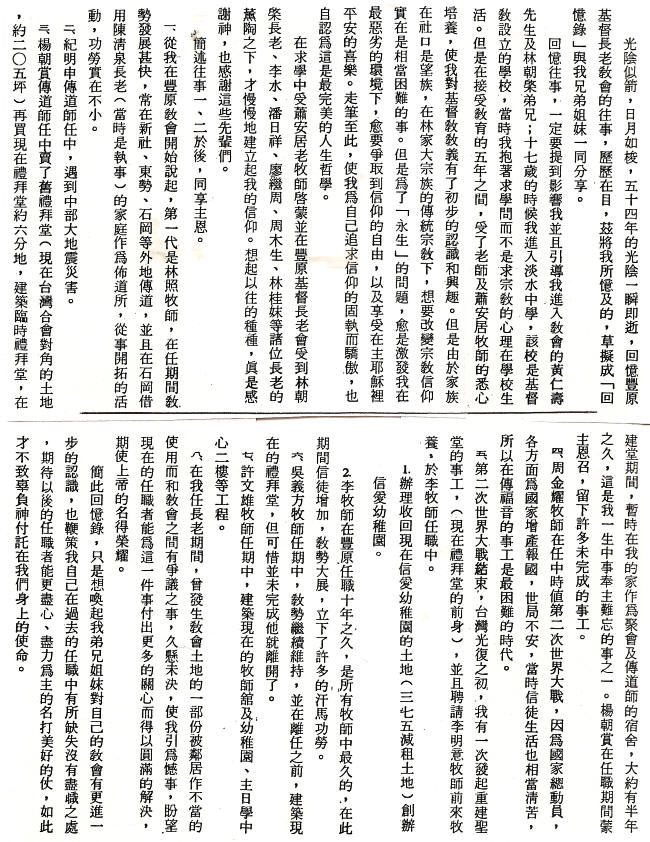 光陰似箭，日月如梭，五十四年的光陰一瞬即逝，回憶豐原
基督長老教會的往事，歷歷在目，茲將我所憶及的，草擬成「回
憶錄」與我兄弟姐妹一同分享。
回憶往事，一定要提到影響我並且引導我進入教會的黃仁壽
先生及林朝榮弟兄；十七歲的時候我進入淡水中學，該校是基督
教設立的學校，當時我抱著求學問而不是求宗教的心理在學校生
活。但是在接受教育的五年之間，受了老師及蕭安居牧師的悉心
培養，使我對基督教教義有了初步的認識和興趣。但是由於家族
在社口是望族，在林家大宗族的傳統宗教下，想要改變宗教信仰
實在是相當困難的事。但是爲了「永生」的問題，愈是激發我在
最惡劣的環境下，愈要爭取到信仰的自由，以及享受在主耶穌裡
平安的喜樂。走筆至此，使我爲自己追求信仰的固執而驕傲，也
自認爲這是最完美的人生哲學。
在求學中受蕭安居老牧師啓蒙並在豐原基督長老會受到林朝
榮長老、李水、潘日祥、廖繼周、周木生、林桂妹等諸位長老的
薰陶之下，才慢慢地建立起我的信仰。想起以往的種種，眞是感
謝神，也感謝這些先輩們。
簡述往事一、二於後，同享主恩。
一、從我在豐原教會開始說起，第一代是林照牧師，在任期間教
勢發展甚快，常在新社、東勢、石岡等外地傳道，並且在石岡借
用陳清泉長老（當時是執事）的家庭作爲佈道所，從事開拓的活
動，功勞實在不小。
二、紀明申傳道師任中，遇到中部大地震災害。
三、楊朝賞傳道師任中賣了舊禮拜堂（現在台灣合會對角的土地
，約二〇五坪）再買現在禮拜堂約六分地，建築臨時禮拜堂，在
建堂期間，暫時在我的家作爲聚會及傳道師的宿舍，大約有半年
之久，這是我一生中事奉主難忘的事之一。楊朝賞在任職期間蒙
主恩召，留下許多未完成的事工。
四、周金耀牧師在任中時値第二次世界大戰，因爲國家總動員，
各方面爲國家增產報國，世局不安，當時信徒生活也相當清苦，
所以在傳福音的事工是最困難的時代。
五、第二次世界大戰結束，台灣光復之初，我有一次發起重建聖
堂的事工，（現在禮拜堂的前身），並且聘請李明意牧師前來牧
養，於李牧師任職中。
1.辦理收回現在信愛幼稚園的土地（三七五減租土地）創辦
信愛幼稚園。
2.李牧師在豐原任職十年之久，是所有牧師中最久的，在此
期間信徒增加，教勢大展，立下了許多的汗馬功勞。
六、吳義方牧師任期中，教勢繼續維持，並在離任之前，建築現
在的禮拜堂，但可惜並未完成他就離開了。
七、許文雄牧師任期中，建築現在的牧師舘及幼稚園、主日學中
心二樓等工程。
八、在我任長老期間，曾發生教會土地的一部份被鄰居作不當的
使用而和教會之間有爭議之事，久懸未決，使我引爲憾事，盼望
現在的任職者能爲這一件事付出更多的關心而得以圓滿的解決，
期使上帝的名得榮耀。
簡此回憶錄，只是想喚起我弟兄姐妹對自己的教會有更進一
步的認識，也鞭策我自己在過去的任職中有所缺失沒有盡職之處
，期待以後的任職者能更盡心、盡力爲主的名打美好的仗，如此
才不致辜負神付託在我們身上的使命。